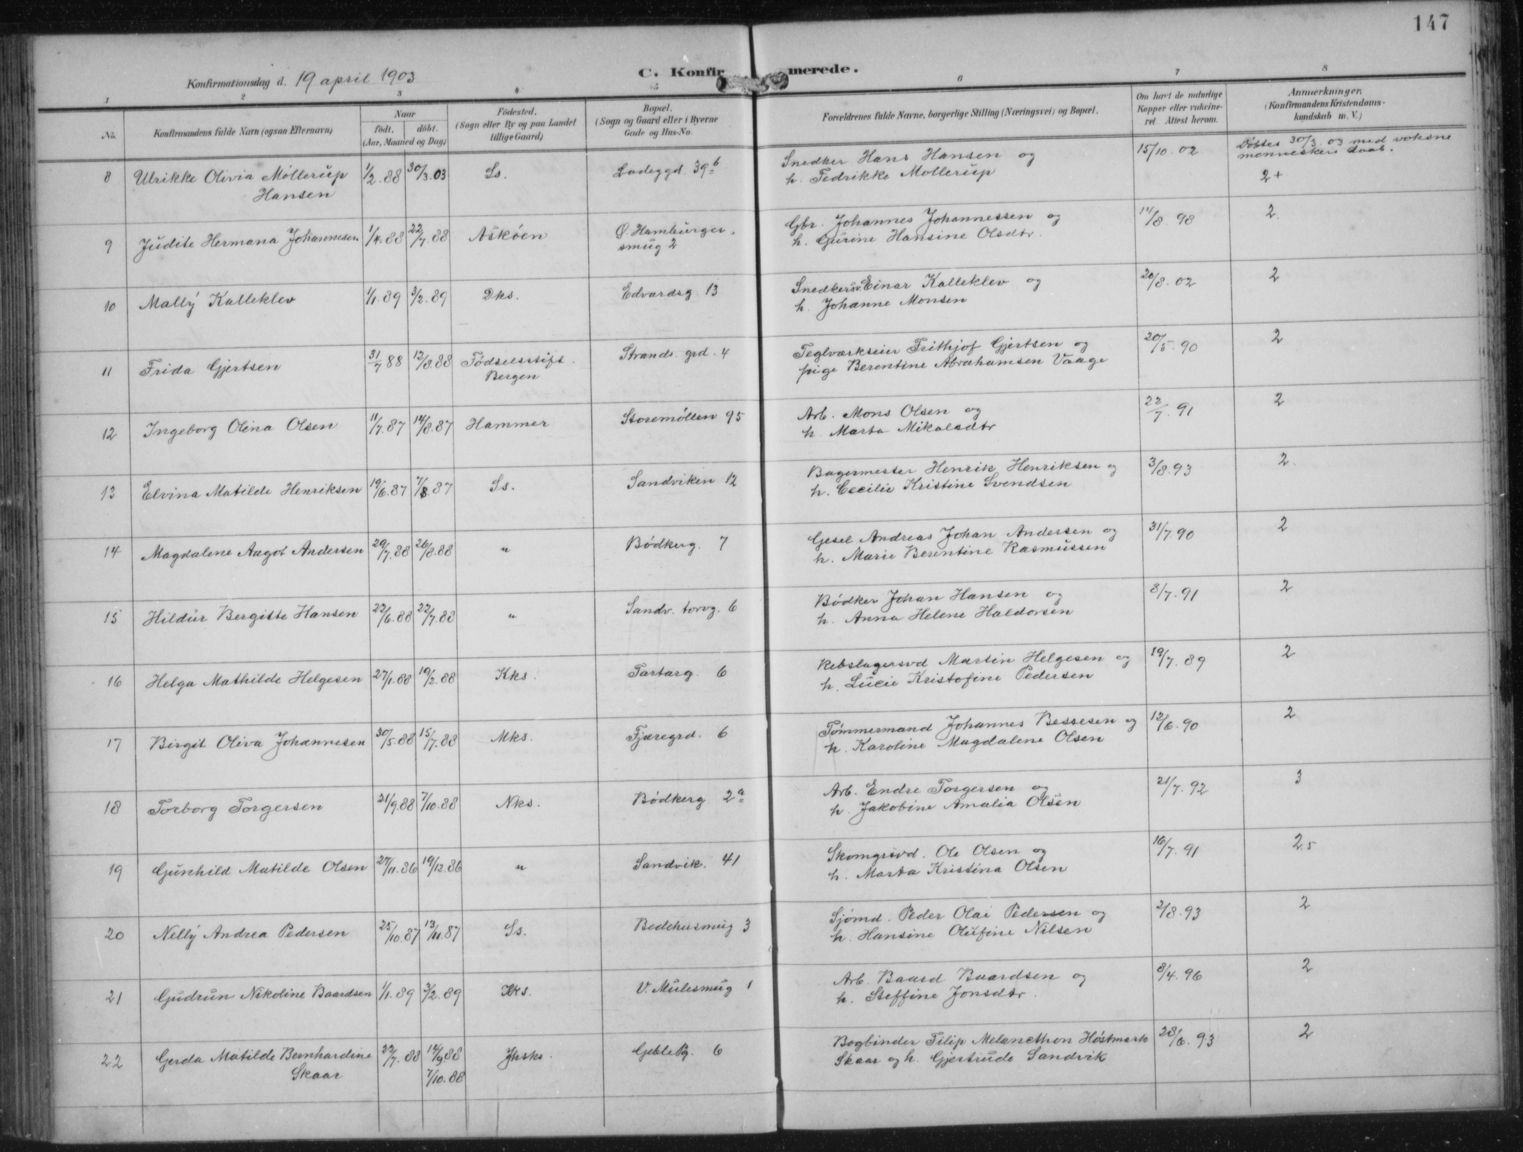 147
Konfirmationsdag d. 19 april 1903
C. Konfirmerede.
1 2 3 4 5 6 7 8
No. Konfirmandens fulde Navn (ogsaa Efternavn) Naar født. døbt. (Aar, Maaned og Dag) Fødested. (Sogn eller By og paa Landet tillige Gaard) Bopæl. (Sogn og Gaard eller i Byerne Gade og Hus-No. Forældrenes fulde Navne, borgerlige Stilling (Næringsvei) og Bopæl. Om havt de naturlige Kopper eller vakcineret. Attest herom. Anmærkninger. (Konfirmandens Kristendomskundskab m. V.)
8 Ulrikke Olivia Møllerup Hansen 1/2.88 30/3.03 Ss. Ladeggd. 39b Snedker Hans Hansen og h. Fedrikke Møllerup 15/10.02 Døbtes 30/3.03 med voksne menneskers daab. 2+
9 Judite Hermana Johannesen 1/4.88 22/7.88 Askøen Ø. Hamburger-smug 2 Gbr. Johannes Johannessen og h. Gurine Hansine Olsdtr. 14/8.98 2
10 Mally Kalleklev 1/1.89 3/2.89 Dks. Edvardsg 13 Snedkersv. Einar Kalleklev og h. Johanne Monsen 20/8.02 2
11 Frida Gjertsen 31/7 88 12/8.88 Fødselsstift. Bergen Strandr. grd. 4 Teglværkseier Frithjof Gjertsen og pige Berentine Abrahamsen Vaage 20/5.90 2
12 Ingeborg Olena Olsen 11/7.87 14/8.87 Hammer Storemøllen 95 Arb. Mons Olsen og h. Marta Mikalsdtr 22/7.91 2
13 Elvina Matilde Henriksen 19/6.87 7/8.87 Ss. Sandviken 12 Bagermester Henrik Henriksen og h. Cecilie Kristine Svendsen 3/8.93 2
14 Magdalene Aagot Andersen 29/7.88 26/8.88 " Bødkerg. 7 Gesel Andreas Johan Andersen og h. Marie Berentine Rasmussen 31/7.90 2
15 Hildur Bergitte Hansen 22/6.88 22/7.88 " Sandv. torvg. 6 Bødker Johan Hansen og h. Anna Helene Haldorsen 8/7.91 2
16 Helga Mathilde Helgesen 27/1.88 19/2.88 Kks. Tartarg. 6 Rebslagersvd Martin Helgesen og h. Lucie Kristofine Pedersen 19/7.89 2
17 Birgit Oliva Johannesen 30/5.88 15/7.88 Mks. Fjæregrd. 6 Tømmermand Johannes Bessesen og h. Karoline Magdalene Olsen 12/6.90 2
18 Torborg Torgersen 21/9.88 7/10.88 Nks. Bødkerg 2a Arb. Endre Torgersen og h Jakobine Amalia Olsen 21/7.92 3
19 Gunhild Matilde Olsen 27/11.86 19/12.86 " Sandvik. 41 Skomgsvd. Ole Olsen og h. Marta Kristina Olsen 16/7.91 2,5
20 Nelly Andrea Pedersen 25/10.87 13/11.87 Ss. Bedehusmug 3 Sjømd. Peder Olai Pedersen og h. Hansine Olufine Nilsen 2/8.93 2
21 Gudrun Nikoline Baardsen 1/1.89 3/2.89 Kks. V. Mulesmug 1 Arb. Baard Baardsen og h. Steffine Jonsdtr. 8/4.96 2
22 Gerda Matilde Bernhardine Skaar 22/7.88 14/9.88 7/10.88 Jhsks. Gableg. 6 Bogbinder Filip Melancthon Høstmark Skaar og h. Gjertrude Sandvik 28/6.93 2